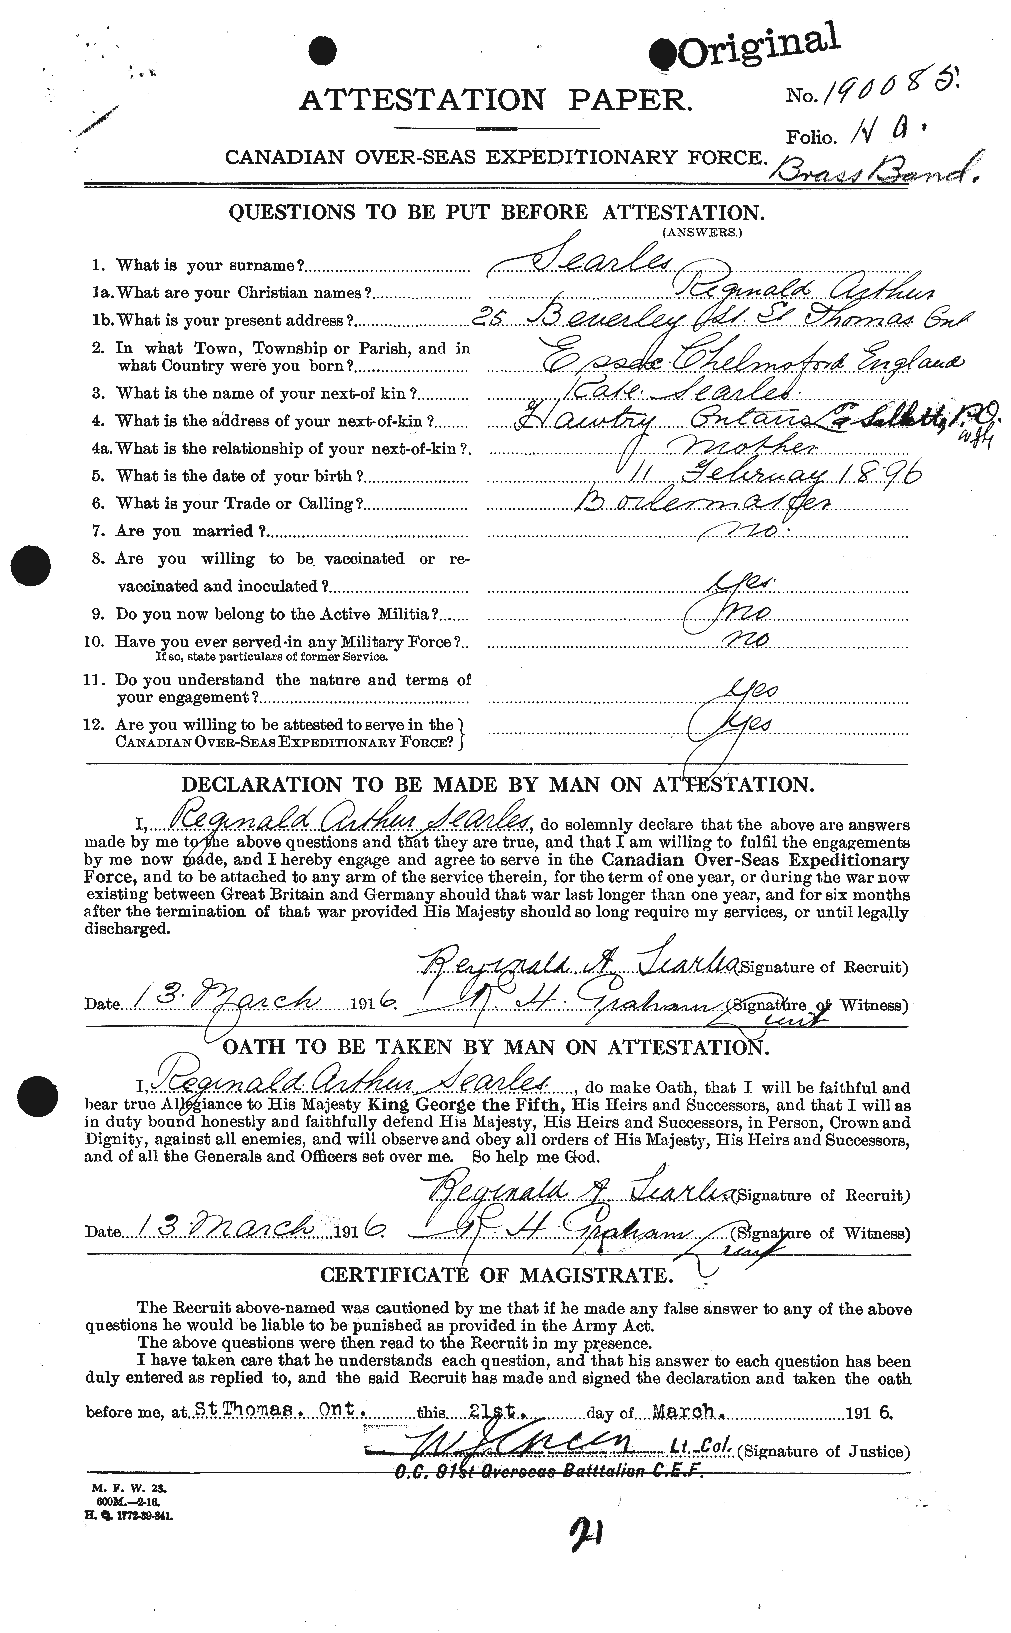 Original
No. 190085.
ATTESTATION PAPER.
Folio.
CANADIAN OVER-SEAS EXPEDITIONARY FORCE.
Brass Band.
QUESTIONS TO BE PUT BEFORE ATTESTATION.
(ANSWERS.)
1. What is your surname? Searles
1a. What are your Christian names? Reginald Arthur
1b. What is your present address? 25 Beverley St. St Thomas Ont
2. In what Town, Township or Parish, and in
what Country were you born? Essex Chelmsford England
3. What is the name of your next-of kin? Kate Searles.
4. What is the address of your next-of-kin? Hawtry Ontario P.O.
4a. What is the relationship of your next-of-kin? Mother
5. What is the date of your birth? 11 February 1896
6. What is your Trade or Calling?
7. Are you married? no.
8. Are you willing to be vaccinated or re-
vaccinated and inoculated? Yes.
9. Do you now belong to the Active Militia? no
10. Have you ever served in any Military Force? no
If so, state particulars of former Service.
11. Do you understand the nature and terms of
your engagement? Yes
12. Are you willing to be attested to serve in the } Yes
CANADIAN OVER-SEAS EXPEDITIONARY FORCE?
DECLARATION TO BE MADE BY MAN ON ATTESTATION.
I, Reginald Arthur Searles, do solemnly declare that the above are answers
made by me to the above questions and that they are true, and that I am willing to fulfil the engagements
by me now made, and I hereby engage and agree to serve in the Canadian Over-Seas Expeditionary
Force, and to be attached to any arm of the service therein, for the term of one year, or during the war now
existing between Great Britain and Germany should that war last longer than one year, and for six months
after the termination of that war provided His Majesty should so long require my services, or until legally
discharged.
Reginald A. Searles (Signature of Recruit)
Date 13 March 1916. R. H. Graham (Signature of Witness)
Lieut
OATH TO BE TAKEN BY MAN ON ATTESTATION.
I, Reginald Arthur Searles, do make Oath, that I will be faithful and
bear true Allegiance to His Majesty King George the Fifth, His Heirs and Successors, and that I will as
in duty bound honestly and faithfully defend His Majesty, His Heirs and Successors, in Person, Crown and
Dignity, against all enemies, and will observe and obey all orders of His Majesty, His Heirs and Successors,
and of all the Generals and Officers set over me. So help me God.
Reginald A. Searles (Signature of Recruit)
Date 13 March 1916. R. H. Graham (Signature of Witness)
Lieut
CERTIFICATE OF MAGISTRATE.
The Recruit above-named was cautioned by me that if he made any false answer to any of the above
questions he would be liable to be punished as provided in the Army Act.
The above questions were then read to the Recruit in my presence.
I have taken care that he understands each question, and that his answer to each question has been
duly entered as replied to, and the said Recruit has made and signed the declaration and taken the oath
before me, at St Thomas. Ont. this 21st. day of March. 1916.
W J Green Lt. Col. (Signature of Justice)
O.C. 91st Overseas Batttalion C.E.F.
M. F. W. 23.
600M.—2-16.
H. Q. 1772-39-841.
21